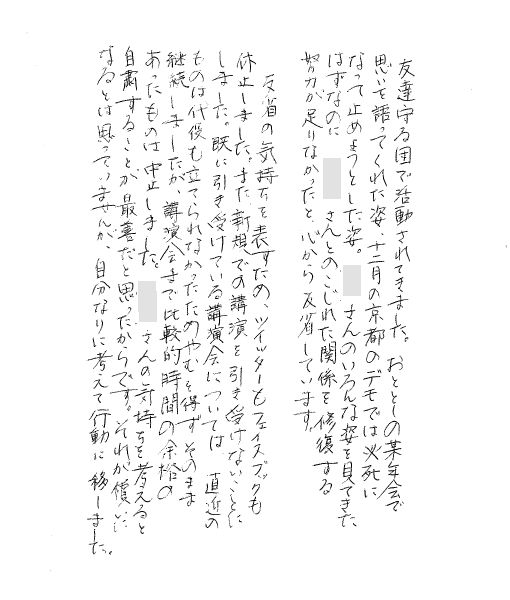 友達守る団で活動されてきました。おととしの某年会で
思いを語ってくれた姿、十二月の京都のデモでは必死に
なって止めようとした姿。 さんのいろんな姿を見てきた
はずなのに さんとのこじれた関係を修復する
努力が足りなかったと、心から反省しています。
反省の気持ちを表すため、ツイッターもフェイスブックも
休止しました。また、新規での講演を引き受けないことに
しました。既に引き受けている講演会については 直近の
ものは代役も立てられなかったためやむを得ず、そのまま
継続しましたが、講演会まで比較的時間の余裕の
あったものは中止しました。 さんの気持ちを考えると
自粛することが最善だと思ったからです。それが償いに
なるとは思っていませんが、自分なりに考えて行動に移しました。